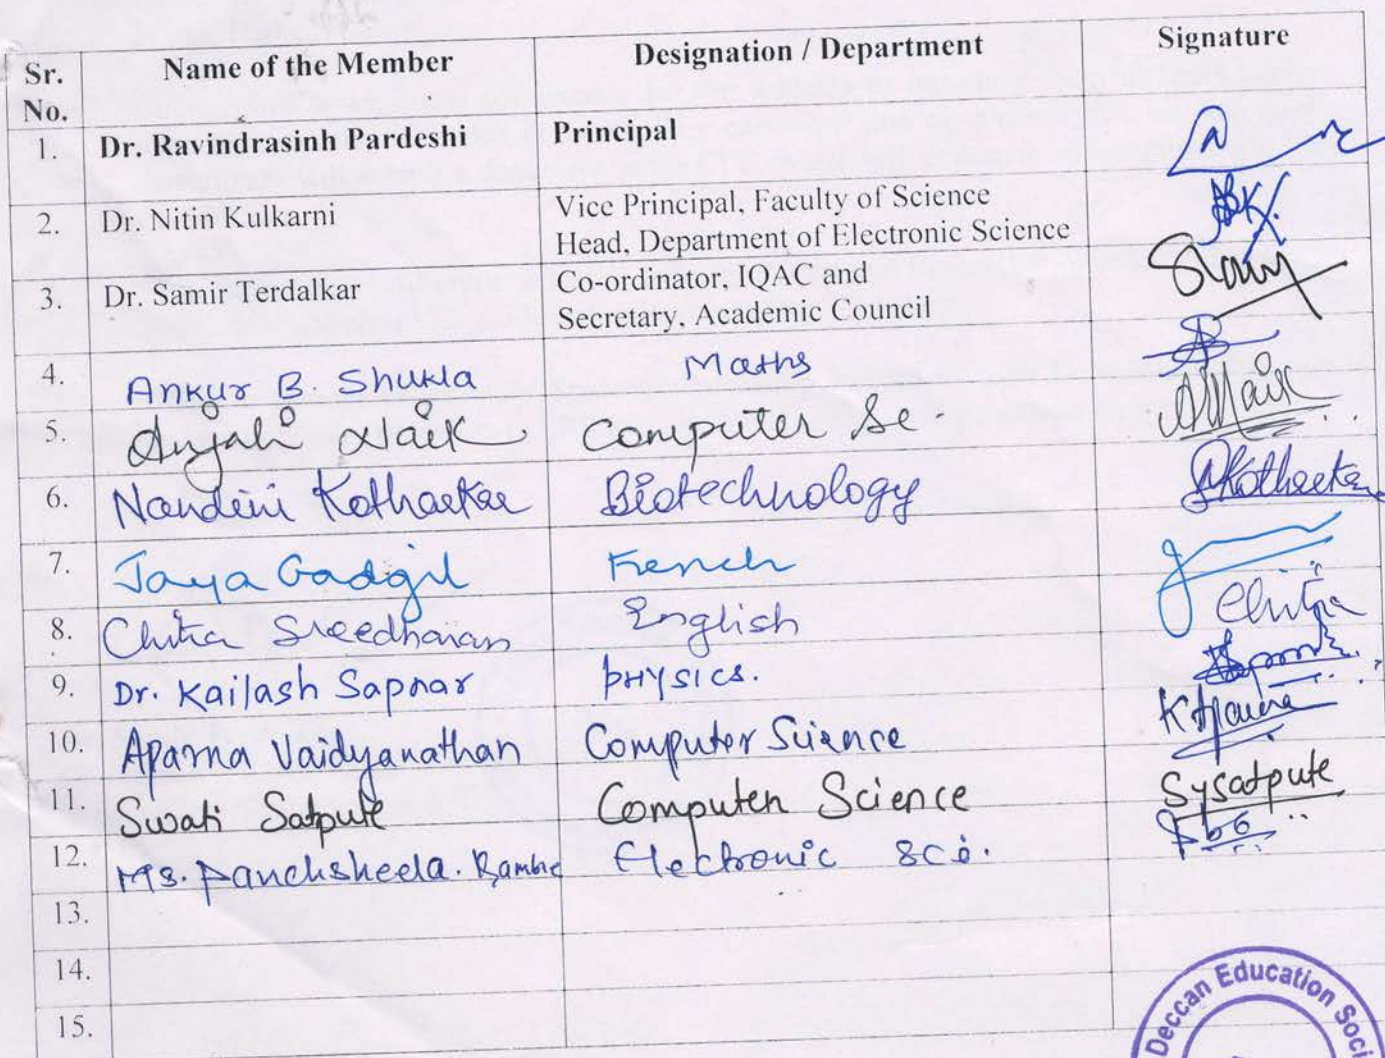 Sr. No. Name of the Member Designation / Department Signature
1. Dr. Ravindrasinh Pardeshi Principal
2. Dr. Nitin Kulkarni Vice Principal, Faculty of Science
Head, Department of Electronic Science
3. Dr. Samir Terdalkar Co-ordinator, IQAC and
Secretary, Academic Council
4. Ankur B. Shukla Maths
5. Anjali Naik Computer Sc. ANaik
6. Nandini Kotharkar Biotechnology NKotharkar
7. Jaya Gadgil French
8. Chitra Sreedharan English Chitra
9. Dr. Kailash Sapnar PHYSICS.
10. Aparna Vaidyanathan Computer Science
11. Swati Satpute Computer Science Sysatpute
12. Ms. Panchsheela. Kamble Electronic Sci.
13.
14.
15.
Deccan Education Soci